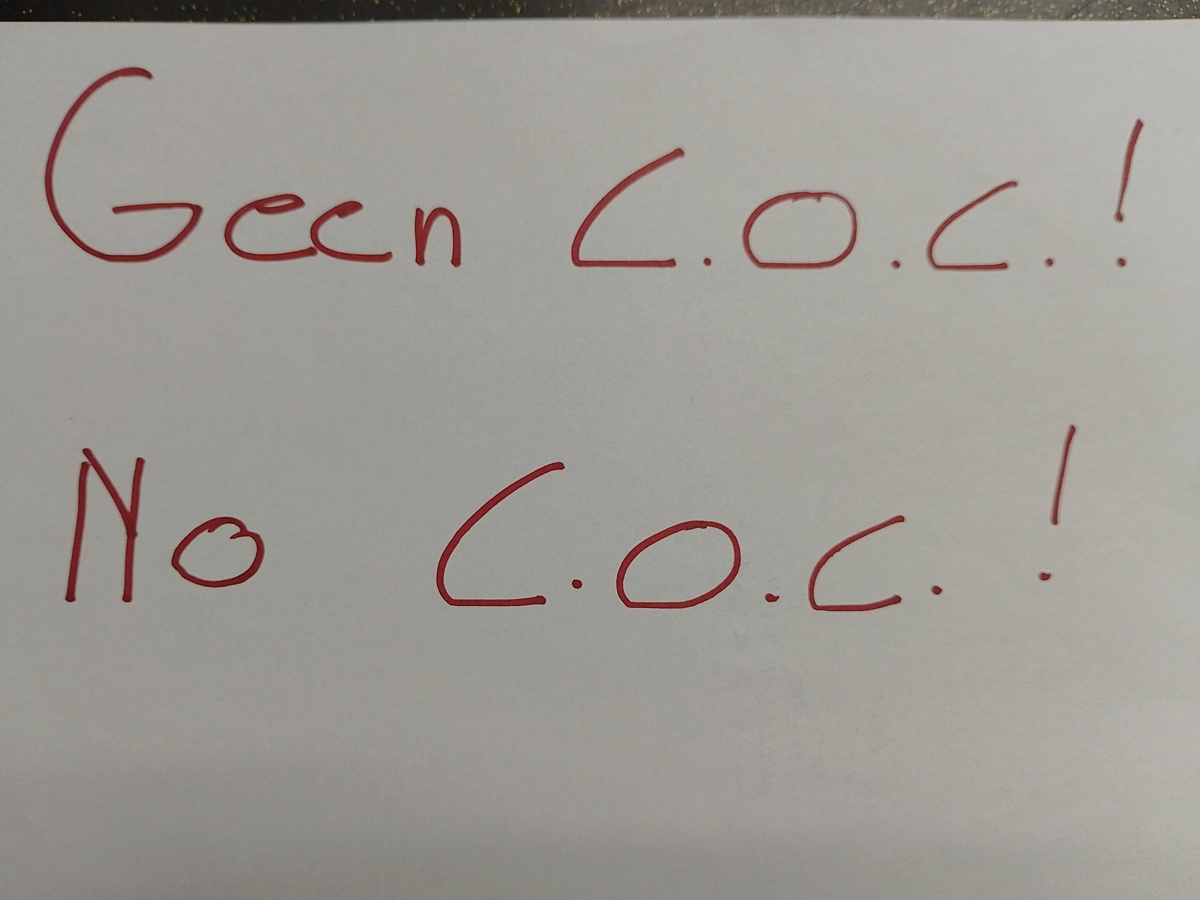 Geen C.O.C.!
No C.O.C.!